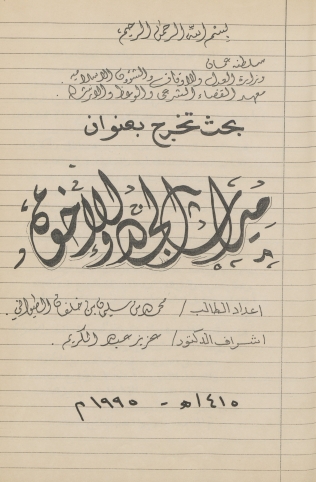 بسم الله الرحمن الرحيم
سلطنة عمان
وزارة العدل والاوقاف والشؤون الاسلامية
معهد القضاء الشرعي والوعظ والارشاد
بحث تخرج بعنوان
ميراث الجد والإخوة
اعداد الطالب / محمد بن سليمان بن خلفان
اشراف الدكتور / عزيز عبد الكريم .
١٤١٥ هـ - ١٩٩٥ م